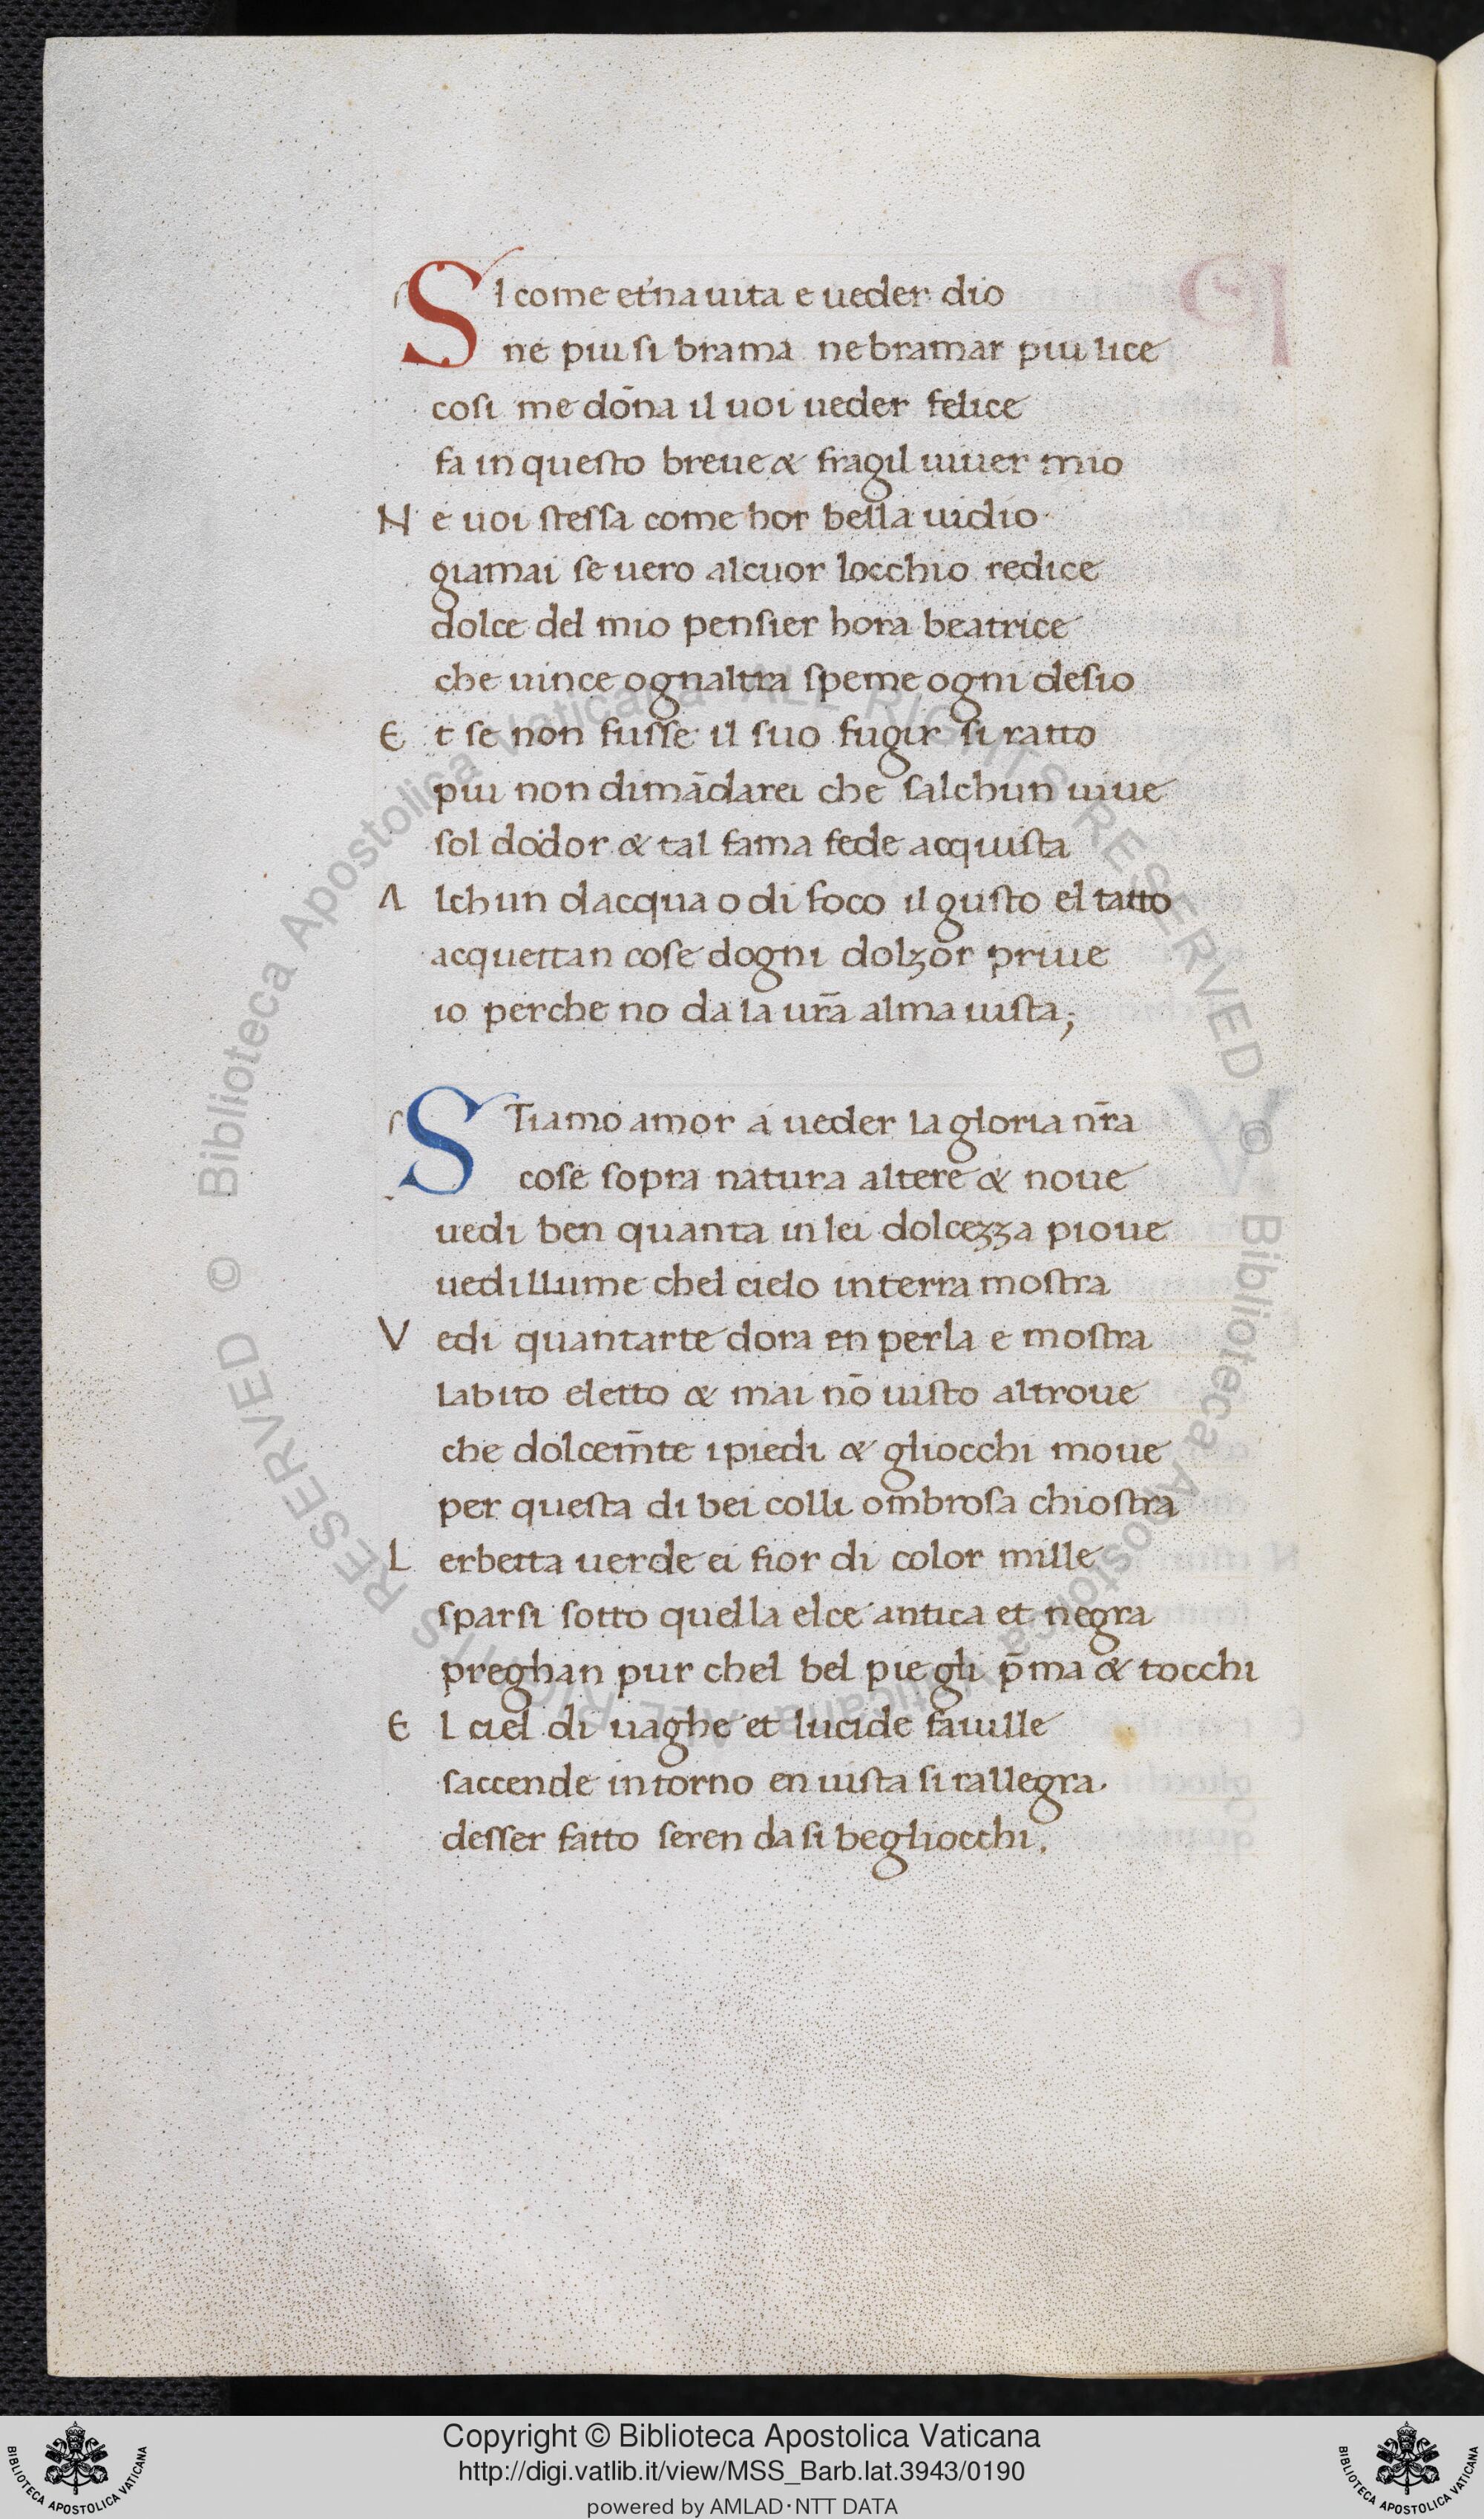 SI come et'na uita e ueder dio
ne piu si brama ne bramar piu lice
cosi me dōna il uoi ueder felice
fa in questo breue & fragil uiuer mio
N e uoi stessa come hor bella uidio
giamai se uero alcuor locchio redice
dolce del mio pensier hora beatrice
che uince ognaltra speme ogni desio
E t se non fusse il suo fugir si ratto
piu non dimādarei che salchun uiue
sol dodor & tal fama fede acquista
A lchun dacqua o di foco il gusto el tatto
acquettan cose dogni dolzor priue
io perche no da la ur̄a alma uista;
STiamo amor a ueder la gloria nr̄a
cose sopra natura altere & noue
uedi ben quanta in lei dolcezza pioue
uedi llume chel cielo in terra mostra
V edi quantarte dora en perla e mostra
labito eletto & mai nō uisto altroue
che dolcem̄te i piedi & gliocchi moue
per questa di bei colli ombrosa chiostra
L erbetta uerde ei fior di color mille
sparsi sotto quella elce antica et negra
preghan pur chel bel pie gli p̄ma & tocchi
E l ciel di uaghe et lucide fauille
saccende intorno en uista si rallegra.
desser fatto seren da si begliocchi.
© Biblioteca Apostolica Vaticana ALL RIGHTS RESERVED
© Biblioteca Apostolica Vaticana ALL RIGHTS RESERVED
Copyright © Biblioteca Apostolica Vaticana
http://digi.vatlib.it/view/MSS_Barb.lat.3943/0190
powered by AMLAD·NTT DATA
BIBLIOTECA APOSTOLICA VATICANA
BIBLIOTECA APOSTOLICA VATICANA